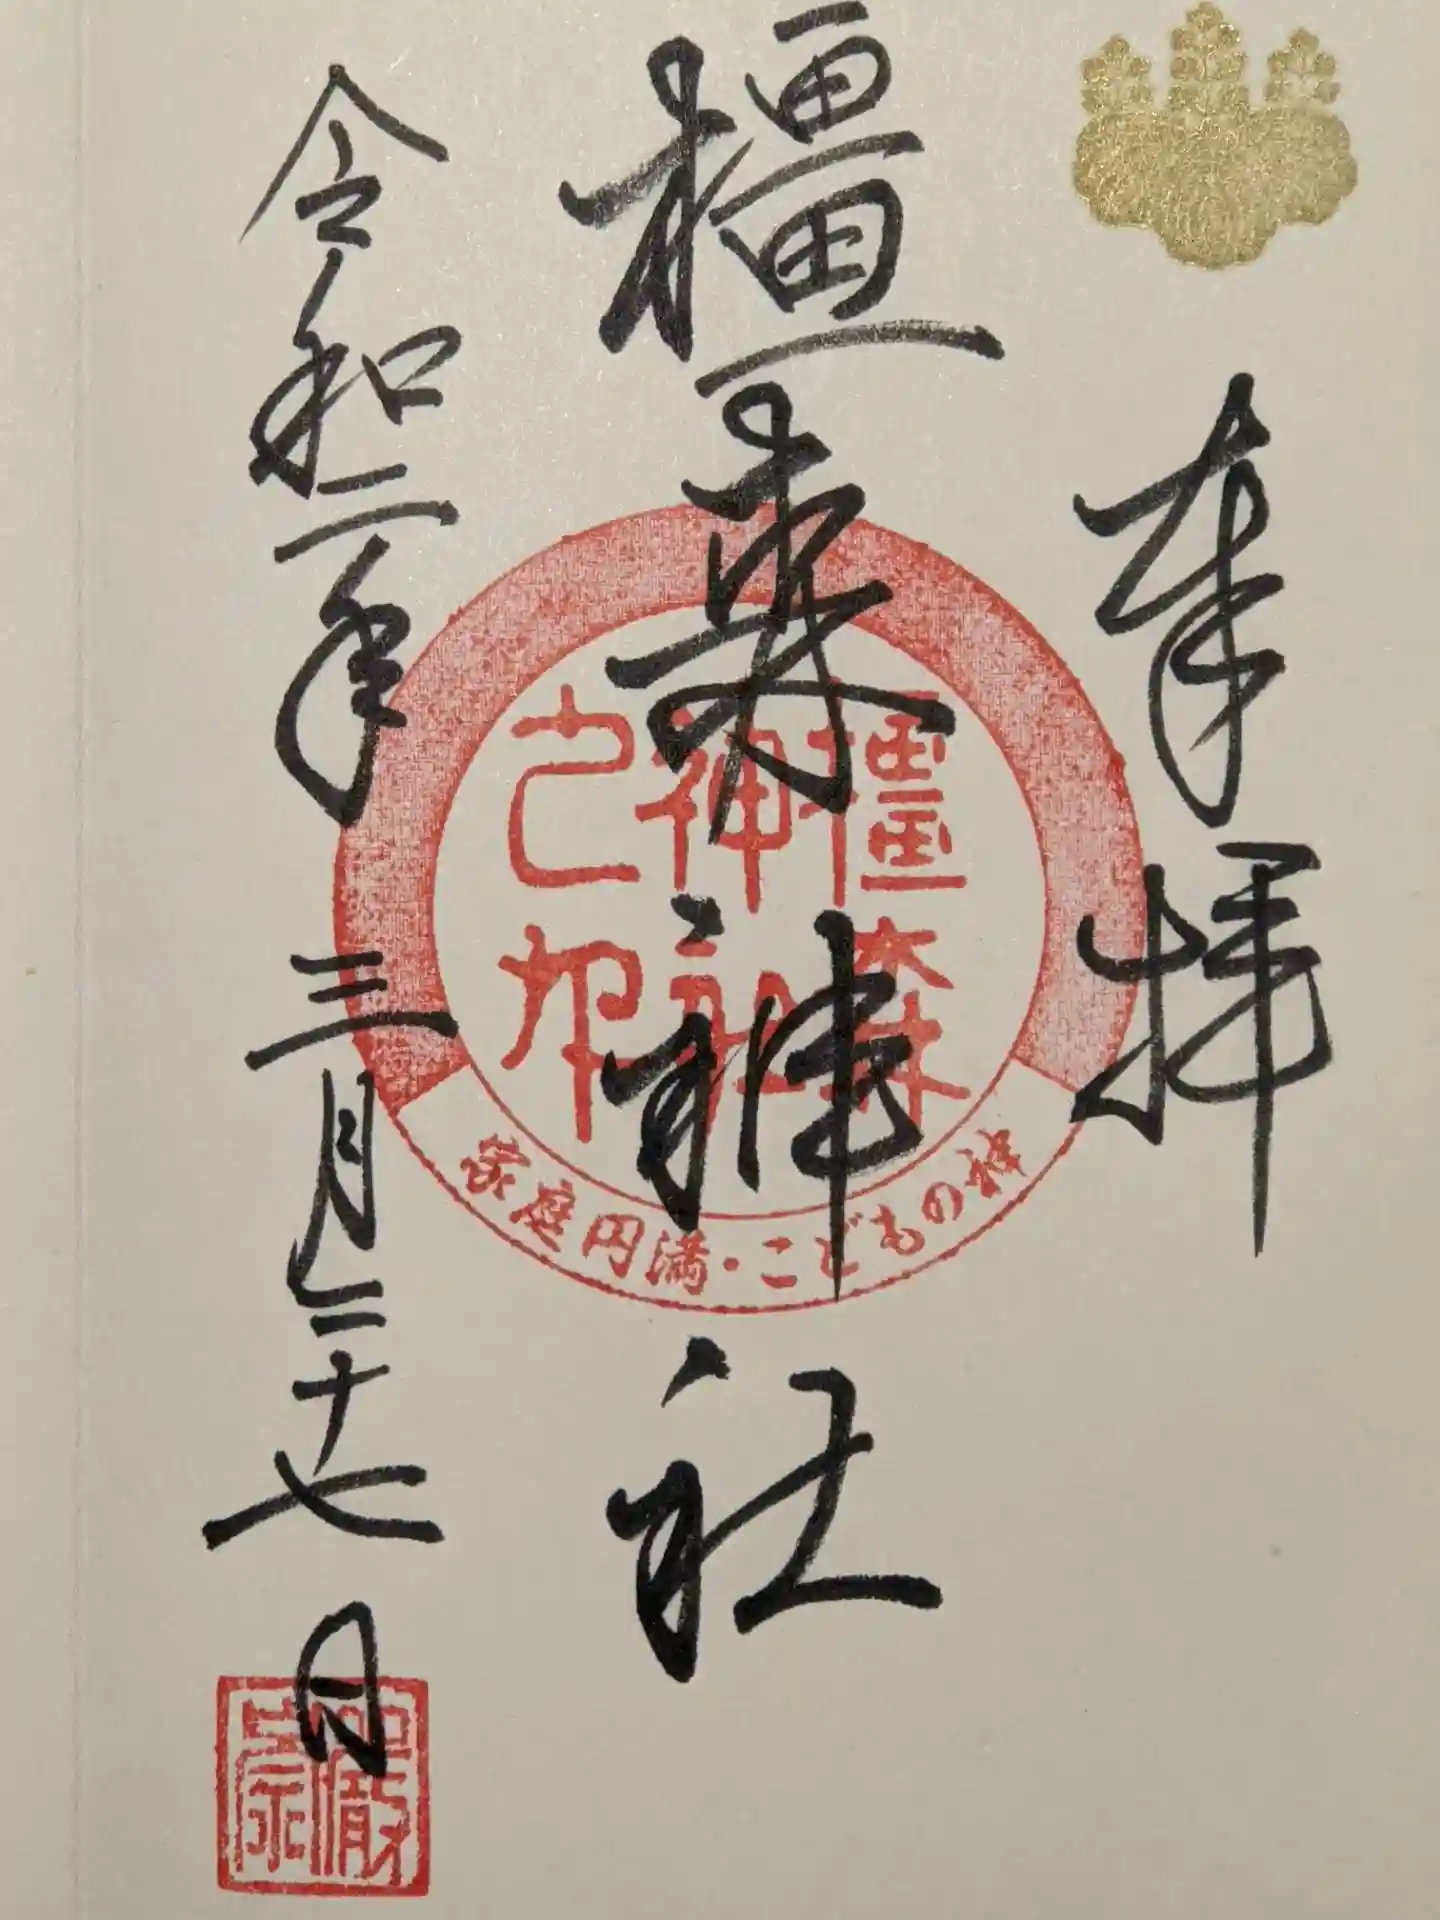 奉拝
橿森神社
令和二年三月二十七日
橿森
神社
之印
家庭円満・こどもの神